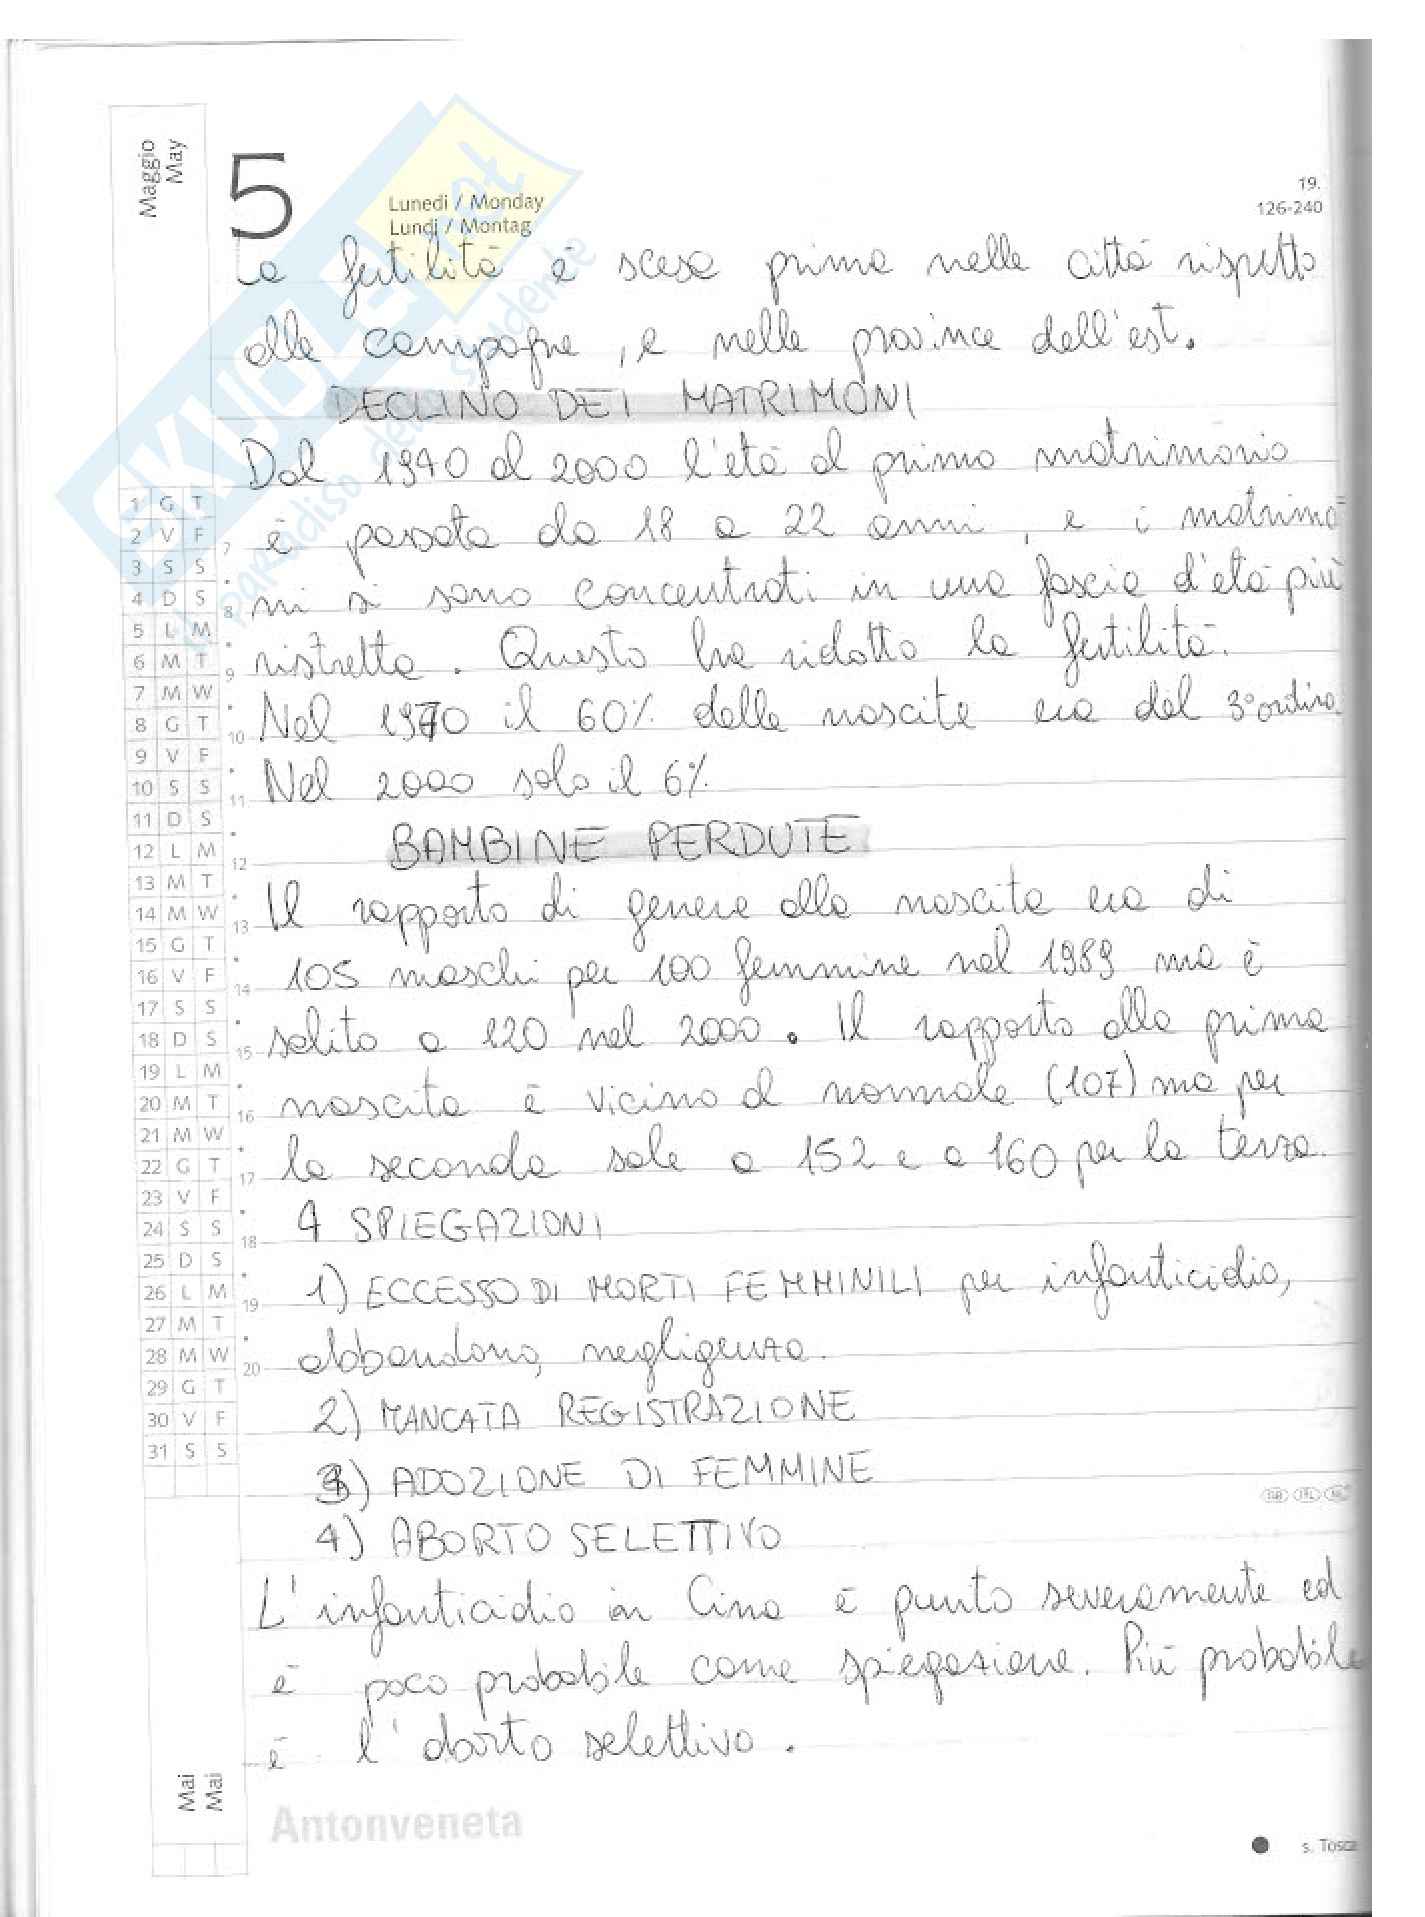 Maggio
May
5
Lunedì / Monday
Lundi / Montag
19.
126-240
SKUOLA.net
il paradiso dello studente
La fertilità è scesa prima nelle città rispetto
alle campagne, e nelle province dell'est.
DECLINO DEI MATRIMONI
Dal 1940 al 2000 l'età al primo matrimonio
è passata da 18 a 22 anni, e i matrimo
ni si sono concentrati in una fascia d'età più
ristretta. Questo ha ridotto la fertilità.
Nel 1970 il 60% delle nascite era del 3° ordine
Nel 2000 solo il 6%
BAMBINE PERDUTE
Il rapporto di genere alla nascita era di
105 maschi per 100 femmine nel 1989 ma è
salito a 120 nel 2000. Il rapporto alla prima
nascita è vicino al normale (107) ma per
la seconda sale a 152 e a 160 per la terza.
4 SPIEGAZIONI
1) ECCESSO DI MORTI FEMMINILI per infanticidio,
abbandono, negligenza.
2) MANCATA REGISTRAZIONE
3) ADOZIONE DI FEMMINE
4) ABORTO SELETTIVO
L'infanticidio in Cina è punito severamente ed
è poco probabile come spiegazione. Più probabile
è l'aborto selettivo.
1 G T
2 V F 7
3 S S
4 D S 8
5 L M
6 M T 9
7 M W
8 G T 10
9 V F
10 S S 11
11 D S
12 L M 12
13 M T
14 M W 13
15 G T
16 V F 14
17 S S
18 D S 15
19 L M
20 M T 16
21 M W
22 G T 17
23 V F
24 S S 18
25 D S
26 L M 19
27 M T
28 M W 20
29 G T
30 V F
31 S S
Mai
Mai
Antonveneta
s. Tosca